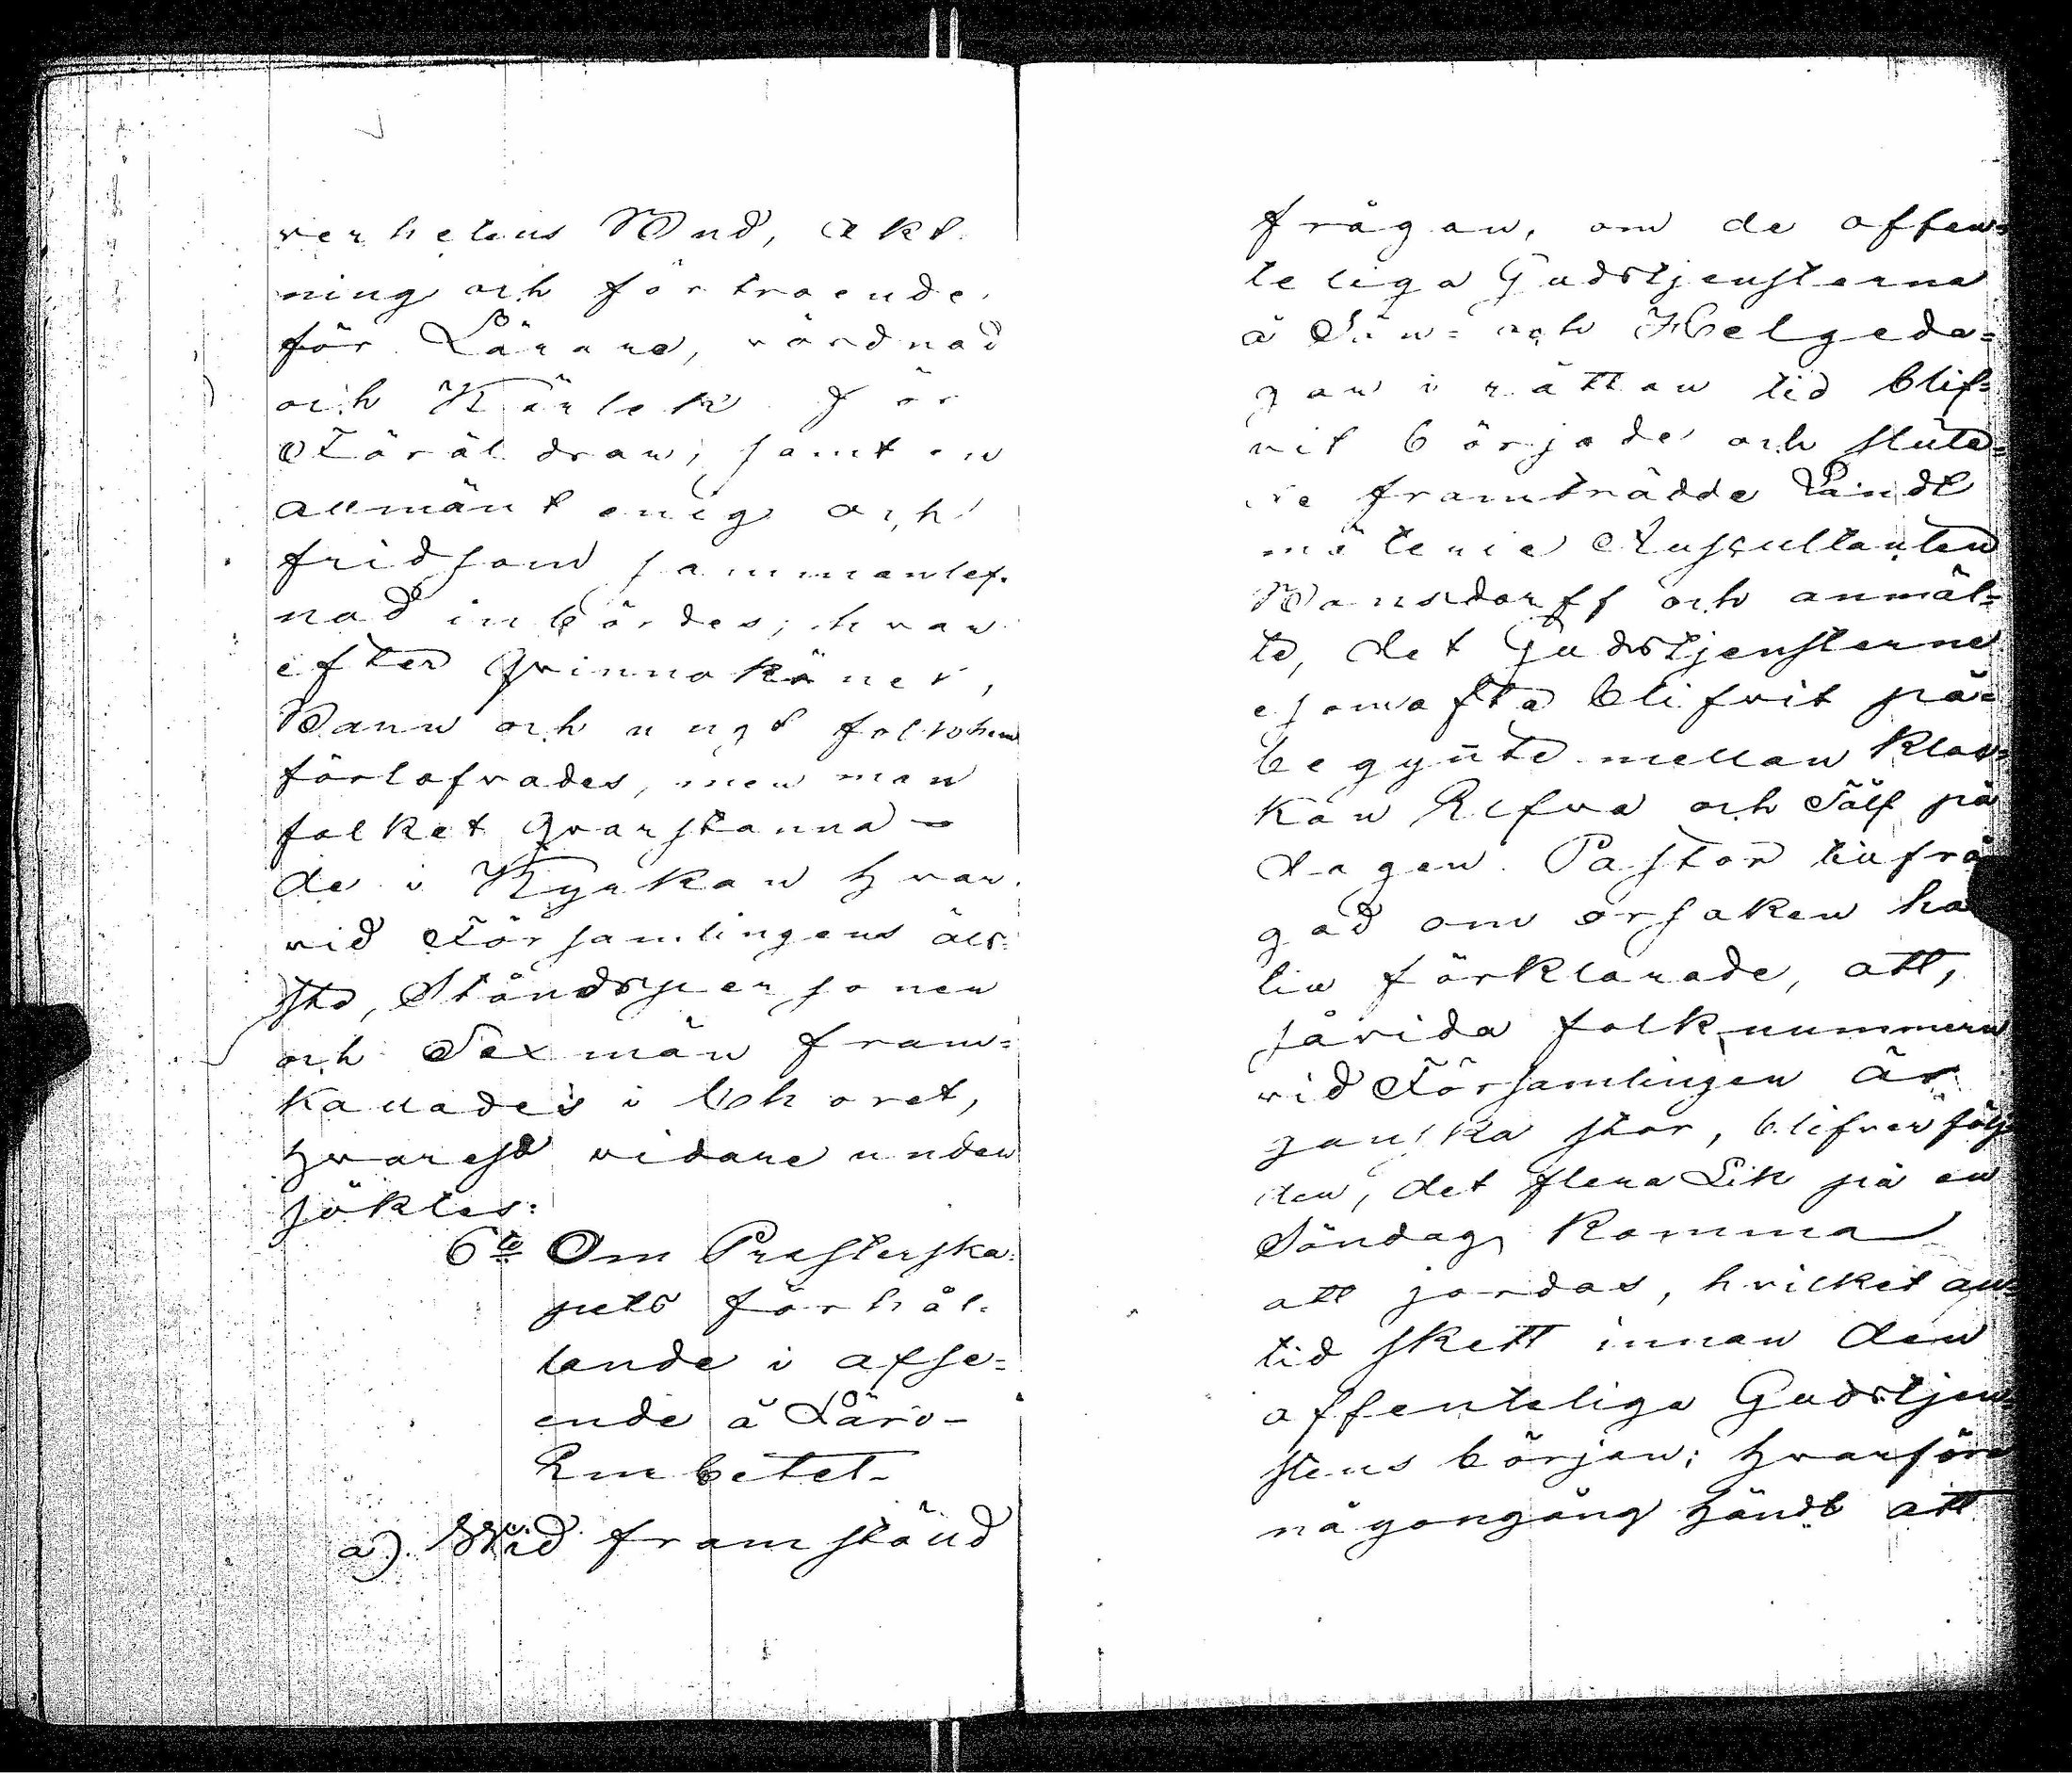 verhetens Bud, akt
ning och förtroende
för Lärare, vördnad
och Kärlek för
Föräldrar; samt en
allmänt enig och
fridsam sammanlef-
nad inbördes; hvar
efter Qvinnokönet,
Barn och ungt folk
förlofvades, men man
folket qvarstanna-
de i Kyrkan hvar
vid Församlingens äld-
sta, Ståndspersoner
och Sexmän fram-
kallades i Choret,
hvarest vidare under
söktes:
6to Om Presterska-
pets förhål-
lande i afse-
ende å Läro-
Embetet.
a). Wid framställd
frågan, om de offen-
teliga Gudstjensterna
å Sön- och Helgeda-
gar i rättan tid blif-
vit började och sluta-
de framträdde Landt
mäterie Auscultanten
Wansdorff och anmäl-
te, det Gudstjensterne
esomofta blifvit på-
begynte mellan Kloc-
kan Elfva och Tolf på
dagen. Pastor tillfrå
gad om orsaken här
till förklarade, att,
såvida folknummern
vid Församlingen är
ganska stor, blifver följ
den, det flera Lik på en
Söndag komma
att jordas, hvilket all-
tid skett innan den
offenteliga Gudstjen-
stens början; hvarföre
någongång händt att